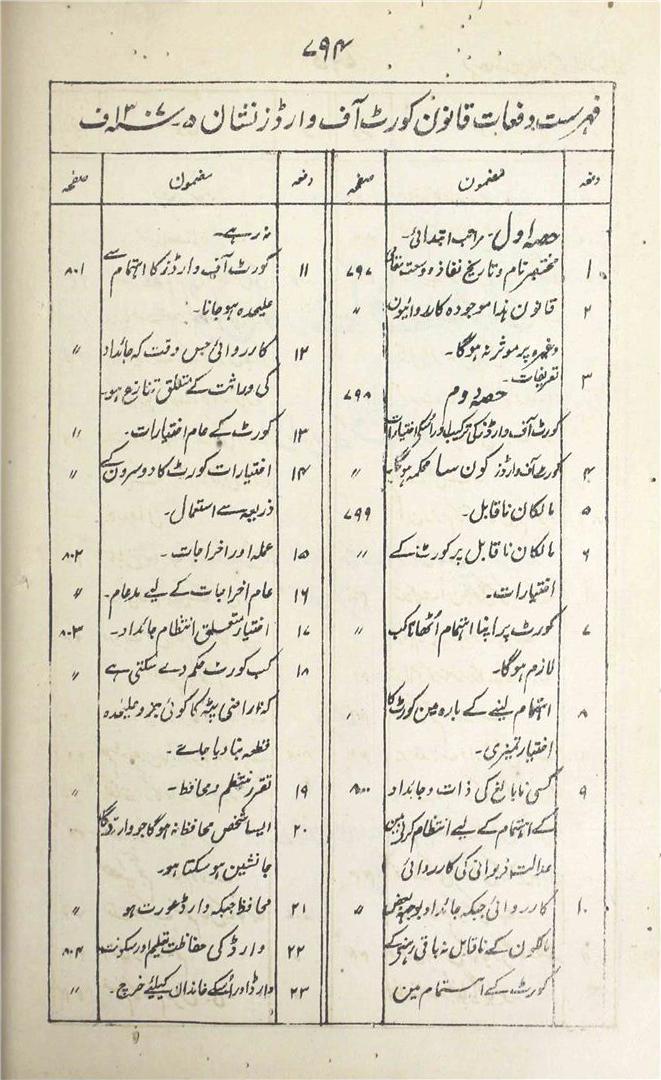 ۷۹۴
فہرست دفعات قانون کورٹ آف وارڈز نشان ۵۔ ۱۳۰۷ ف
دفعہ مضمون صفحہ
حصہ اول۔ مراتب ابتدائی۔
۱ مختصر نام و تاریخ نفاذ و وسعت مقامی ۷۹۷
۲ قانون ہذا موجودہ کارروائیون 〃
وغیرہ پر موثر نہ ہوگا۔
۳ تعریفات۔ ۷۹۸
حصہ دوم
کورٹ آف وارڈز کی ترکیب اور اسکے اختیارات
۴ کورٹ آف وارڈز کون سا محکمہ ہوگا 〃
۵ مالکان ناقابل۔ ۷۹۹
۶ مالکان ناقابل پر کورٹ کے 〃
اختیارات۔
۷ کورٹ پر اپنا اہتمام اُٹھانا کب 〃
لازم ہوگا۔
۸ اہتمام لینے کے بارہ مین کورٹ کا 〃
اختیار تمیزی۔
۹ کسی نابالغ کی ذات و جائداد ۸۰۰
کے اہتمام کے لیے انتظام کرنے مین
عدالت دیوانی کی کارروائی
۱۰ کارروائی جبکہ جائداد بوجہ بعض 〃
مالکون کے ناقابل نہ باقی رہنے کے
کورٹ کے اہتمام مین
دفعہ مضمون صفحہ
نہ رہے۔
۱۱ کورٹ آف وارڈز کا اہتمام سے ۸۰۱
علیحدہ ہو جانا۔
۱۲ کارروائی جس وقت کہ جائداد 〃
کی وراثت کے متعلق تنازع ہو۔
۱۳ کورٹ کے عام اختیارات۔ 〃
۱۴ اختیارات کورٹ کا دوسرون کے 〃
ذریعہ سے استعمال۔
۱۵ عملہ اور اخراجات۔ ۸۰۲
۱۶ عام اخراجات کے لیے مد عام۔ 〃
۱۷ اختیار متعلق انتظام جائداد۔ ۸۰۳
۱۸ کب کورٹ حکم دے سکتی ہے 〃
کہ اراضی پٹہ کا کوئی جزو علیحدہ
قطعہ بنا دیا جائے۔
۱۹ تقرر منتظم و محافظ۔ 〃
۲۰ ایسا شخص محافظ نہ ہوگا جو وارڈ کا
جانشین ہو سکتا ہو۔
۲۱ محافظ جبکہ وارڈ عورت ہو 〃
۲۲ وارڈ کی حفاظت تعلیم اور سکونت ۸۰۴
۲۳ وارڈ اور اُسکے خاندان کیلئے خرچ۔ 〃